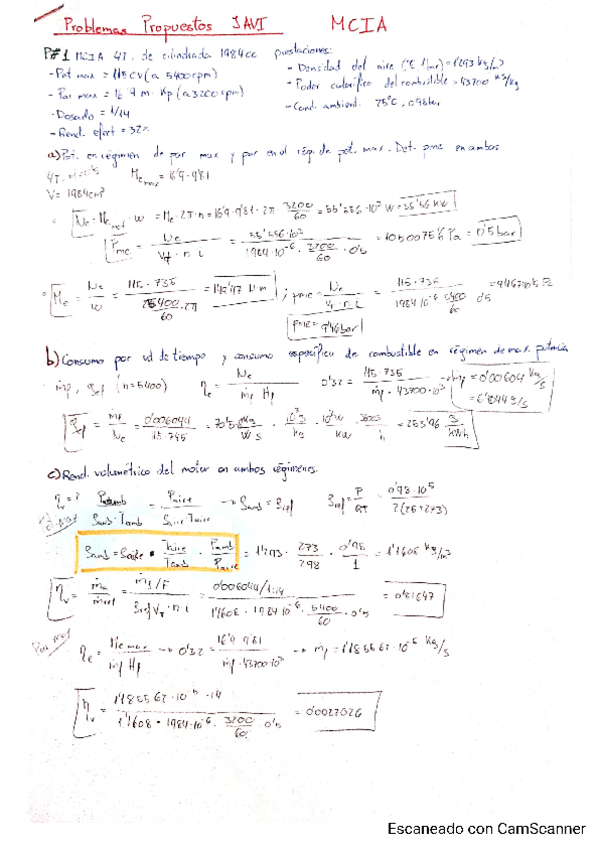 Problemas Propuestos JAVI MCIA
P#1 MCIA 4T. de cilindrada 1984cc prestaciones:
- Pot max = 115CV (a 5400rpm)
- Par max = 16'9 m·Kp (a 3200rpm)
- Dosado = 1/14
- Rend. efect = 32%
- Densidad del aire (0°C 1bar) = 1'293 kg/m³
- Poder calorífico del combustible = 43700 kJ/kg
- Cond. ambient. 25°C, 0'98 bar
a) Pot. en régimen de par max y par en el rég. de pot. max. Det. pme en ambos
4T
V = 1984cm³
Me max = 16'9·9'81
Ne = Me·w = Me·2π·n = 16'9·9'81·2π 3200/60 = 55'556·10³ W = 55'56 kW
Pme = Ne/(VT·n·i) = 55'556·10³/(1984·10⁻⁶·3200/60·0'5) = Pa =
Me = Ne/w = 115·735/(5400/60·2π) = N·m ; pme = Ne/(VT·n·i) = 115·735/(1984·10⁻⁶ 5400/60 0'5) =
pme = 9'46 bar
b) Consumo por ud de tiempo y consumo específico de combustible en régimen de max. potencia
(n=5400) ηe = Ne/(ṁf Hp) 0'32 = 115·735/(ṁf·43700·10³) → ṁf = 0'00604 kg/s
= 6'044 g/s
= ṁf/Ne = 0'006044/ = kg/W s · 10³g/kg · 10³W/kW · 3600s/h = 253'96 g/kWh
c) Rend. volumétrico del motor en ambos régimenes.
ηv = ? Pamb/Tamb = Paire/Taire → = ref ref = P/RT = 0'98·10⁵/
Taire/Tamb · Pamb/Paire = 1'293 · 273/298 · 0'98/1 = 1'1608 kg/m³
ηv = ṁa/ṁref = ṁf/F / ref VT·n i = 0'006044/1:14 / 1'1608·1984·10⁻⁶·5400/60·0'5 = 0'81647
Par max ηe = Me max/(ṁf Hp) → 0'32 = 16'9 9'81/(ṁf·43700·10³) → ṁf = 1'185567·10⁻⁵ kg/s
ηv = 1'185567·10⁻⁵·14/(1'1608·1984·10⁻⁶·3200/60 0'5) = 0'0027026
Escaneado con CamScanner